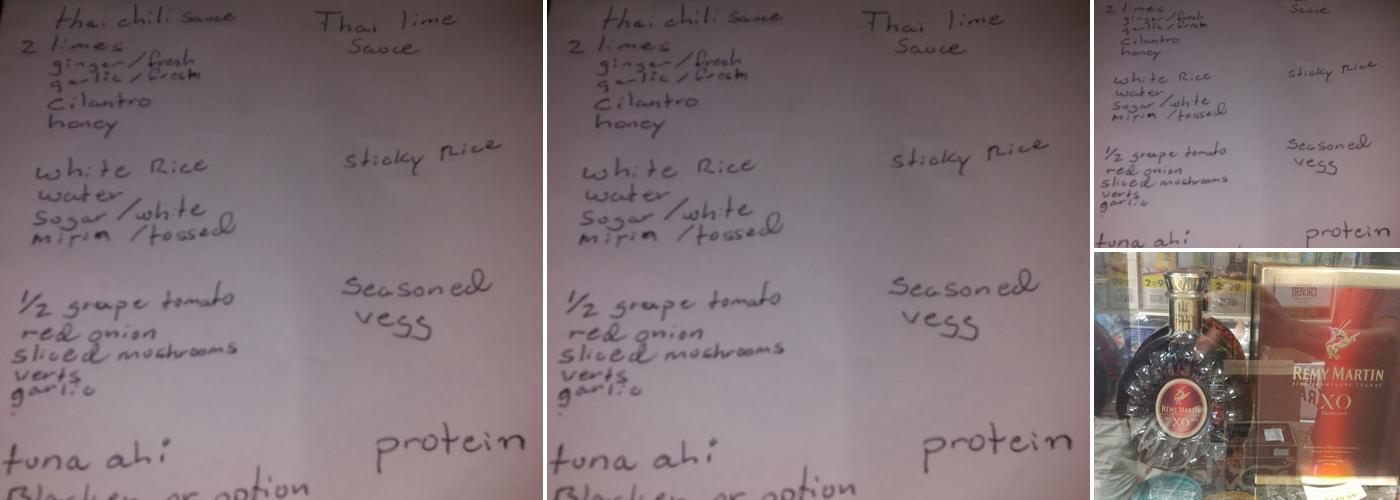 thai chili sauce
Thai lime
Sauce
2 limes
ginger/fresh
garlic/fresh
Cilantro
honey
white Rice
sticky rice
water
Sogar/white
mirin/tossed
Seasoned
vegg
1/2 greupe tomato
red onion
sliced moshrooms
verts
garlic
tuna ahi
protein
Blacken or option
thai chili sauce
Thai lime
Sauce
2 limes
ginger/fresh
garlic/fresh
Cilantro
honey
white Rice
sticky rice
water
Sogar/white
mirin/tossed
Seasoned
vegg
1/2 greupe tomato
red onion
sliced moshrooms
verts
garlic
tuna ahi
protein
Blacken or option
Sauce
ginger/fresh
garlic/fresh
Cilantro
honey
white Rice
sticky rice
water
Sogar/white
mirin/tossed
Seasoned
vegg
1/2 greupe tomato
red onion
sliced moshrooms
verts
garlic
tuna ahi
protein
REMY MARTIN
XO
REMY MARTIN
FINE CHAMPAGNE COGNAC
XO
EXCELLENCE